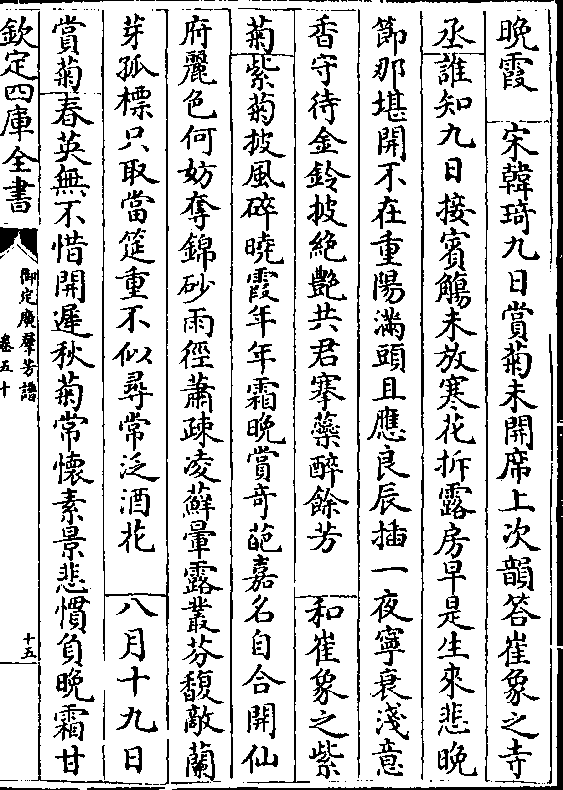 晚霞　宋韓琦九日賞菊未開席上次韻答崔象之寺
丞誰知九日接賓觴未放寒花拆露房早是生來悲晚
節那堪開不在重陽滿頭且應良辰插一夜寧衰淺意
香守待金鈴披絶艷共君搴藥醉餘芳　和崔象之紫
菊紫菊披風碎曉霞年年霜晚賞奇葩嘉名自合開仙
府麗色何妨奪錦砂雨徑蕭疎凌蘚暈露叢芬馥敵蘭
芽孤標只取當筵重不似尋常泛酒花　八月十九日
賞菊春英無不惜開遲秋菊常懷素景悲慣負晚霜甘
欽定四庫全書
御定廣羣芳譜
卷五十
十五